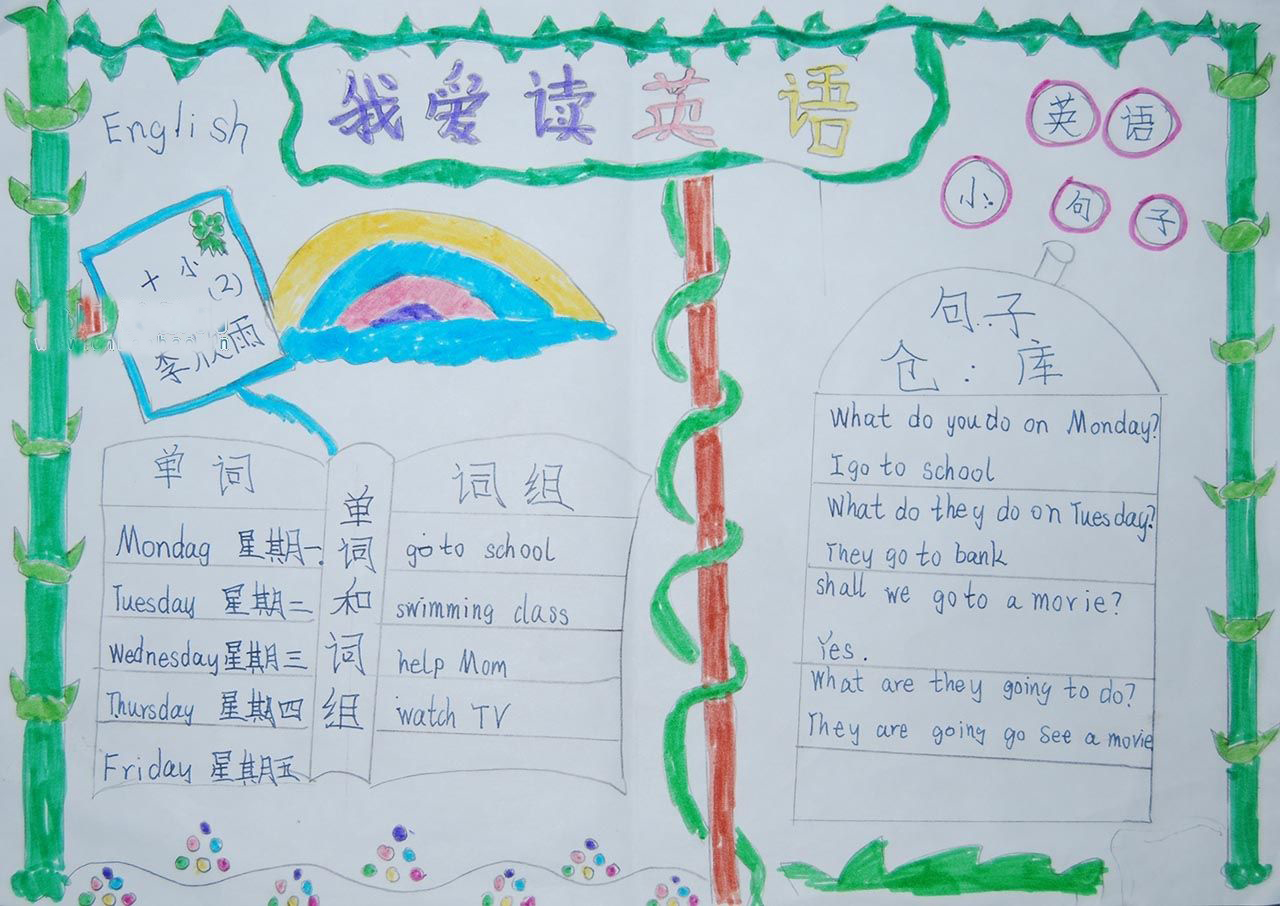 我爱读英语
English
十小(2)
李欣雨
英语
小句子
单词
Mondag 星期一.
Tuesday 星期二
Wednesday 星期三
Thursday 星期四
Friday 星期五
单词和词组
词组
go to school
swimming class
help Mom
watch TV
句子
仓:库
What do you do on Monday?
I go to school
What do they do on Tuesday?
They go to bank
shall we go to a movie?
Yes.
What are they going to do?
They are going go see a movie